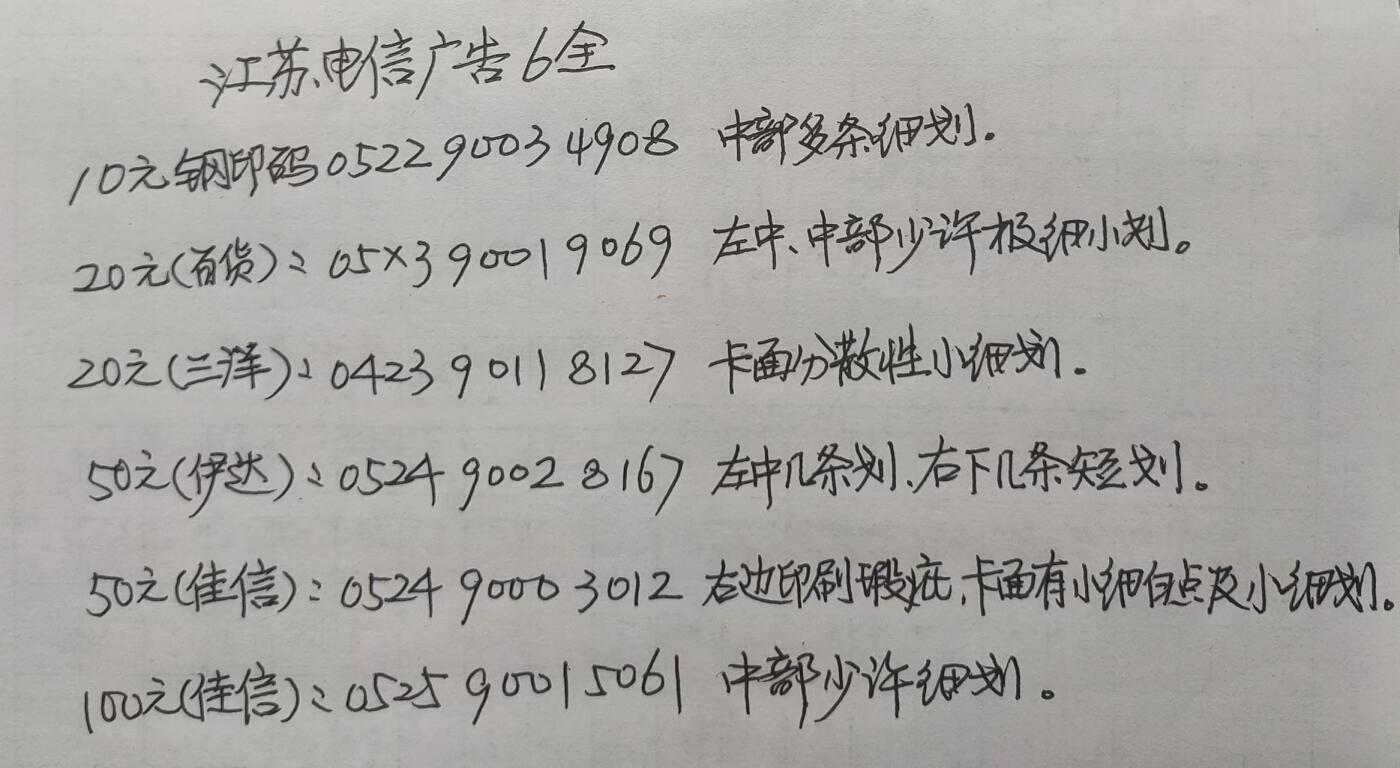 江苏电信广告6全
10元钢印码0522 9003 4908 中部多条细划。
20元(百货):05×3 9001 9069 左中、中部少许极细小划。
20元(三洋):0423 9011 8127 卡面分散性小细划.
50元(伊达):0524 9002 8167 左中几条划、右下几条短划。
50元(佳信):0524 9000 3012 右边印刷瑕疵,卡面有小细白点及小细划。
100元(佳信):0525 9001 5061 中部少许细划。